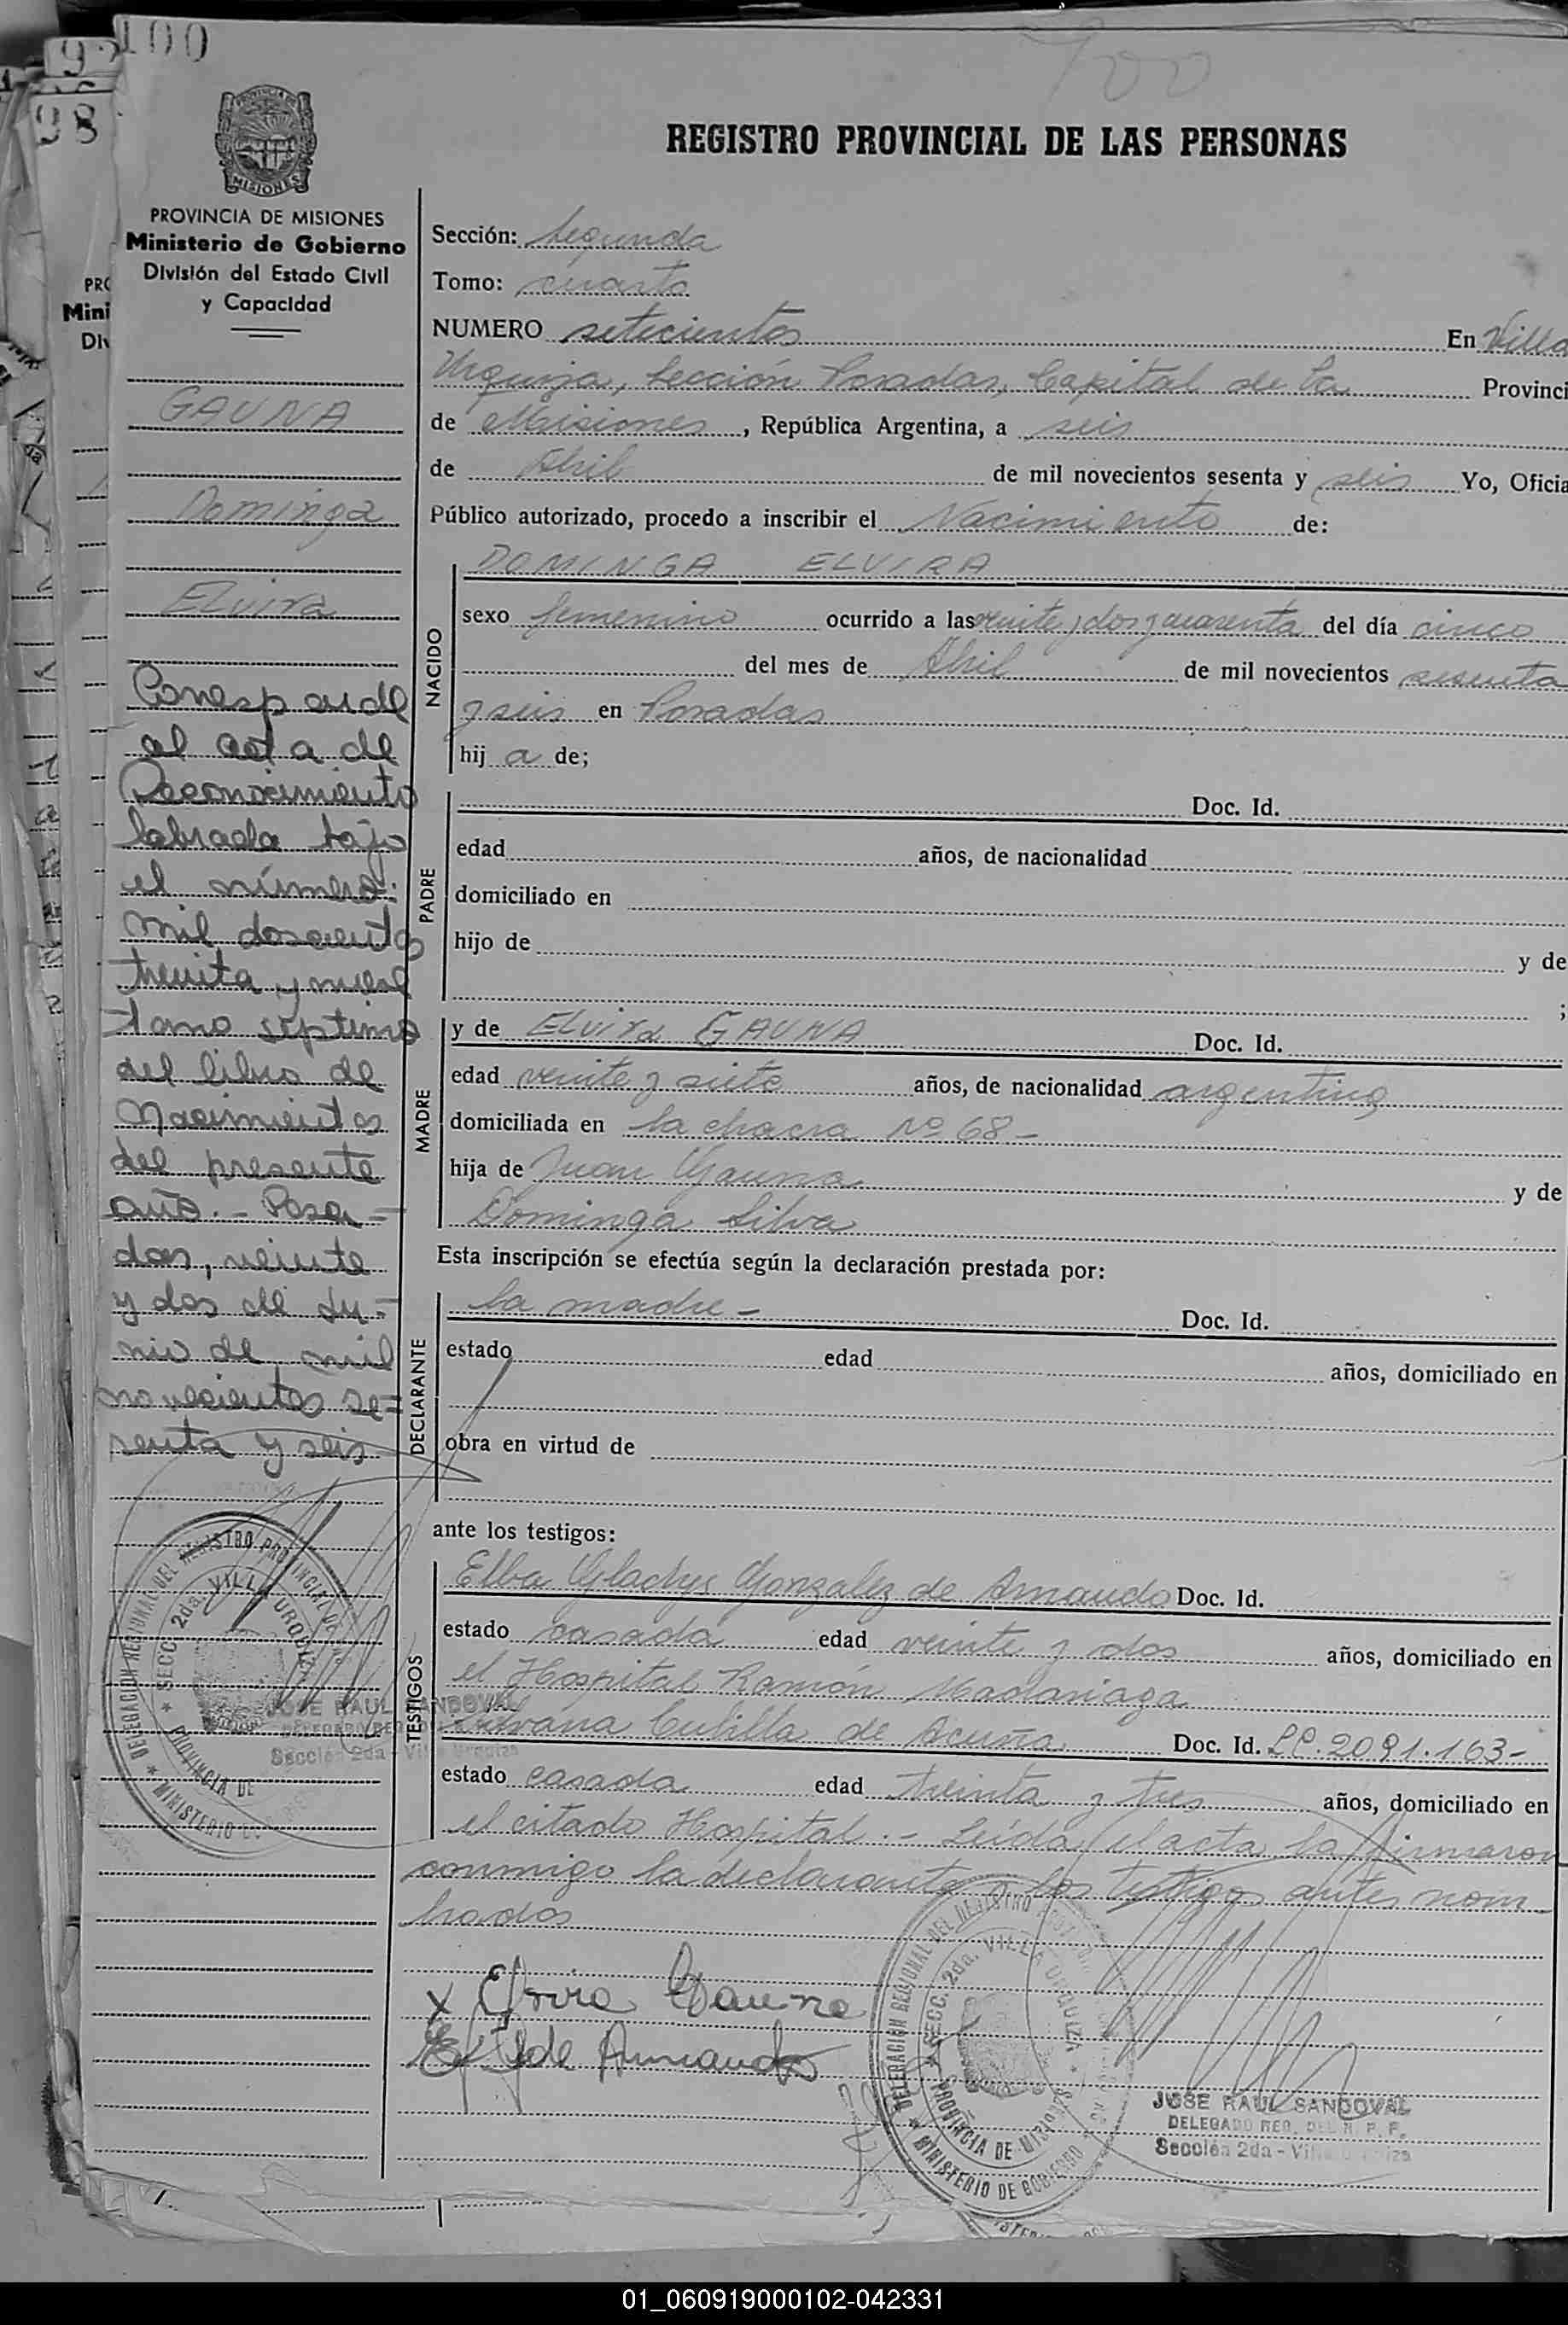 100
98
700
MISIONES
PROVINCIA DE MISIONES
Ministerio de Gobierno
División del Estado Civil
y Capacidad
GAUNA
Dominga
Elvira
Corresponde
al acta de
Reconocimiento
labrada bajo
el número:
mil doscientos
treinta y nueve
tomo séptimo
del libro de
Nacimientos
del presente
año.- Posa-
das, veinte
y dos de Ju-
nio de mil
novecientos se=
senta y seis
REGISTRO PROVINCIAL DE LAS PERSONAS
Sección: Segunda
Tomo: cuarto
NUMERO setecientos En Villa
Urquiza, Sección Posadas, Capital de la Provinci
de Misiones, República Argentina, a seis
de Abril de mil novecientos sesenta y seis Yo, Oficia
Público autorizado, procedo a inscribir el Nacimiento de:
NACIDO
DOMINGA ELVIRA
sexo femenino ocurrido a las veinte y dos y cuarenta del día cinco
del mes de Abril de mil novecientos sesenta
y seis en Posadas
hij a de;
PADRE
Doc. Id.
edad años, de nacionalidad
domiciliado en
hijo de y de
;
MADRE
y de Elvira GAUNA Doc. Id.
edad veinte y siete años, de nacionalidad argentina
domiciliada en la chacra Nº 68-
hija de Juan Gauna y de
Dominga Silva
Esta inscripción se efectúa según la declaración prestada por:
DECLARANTE
la madre- Doc. Id.
estado edad años, domiciliado en
obra en virtud de
ante los testigos:
TESTIGOS
Elba Gladys Gonzalez de Amaudo Doc. Id.
estado casada edad veinte y dos años, domiciliado en
el Hospital Ramón Madariaga
Cubilla de Acuña Doc. Id. LC. 2091.163-
estado casada edad treinta y tres años, domiciliado en
el citado Hospital.- Leída el acta la firmaron
conmigo la declarante y los testigos antes nom-
brados
x Elvira Gauna
DELEGACION REGIONAL DEL REGISTRO
SECC. 2da. VILLA URQUIZA
PROVINCIA DE MISIONES
MINISTERIO DE GOBIERNO
JOSE RAUL SANDOVAL
DELEGADO REG. DEL R. P. P.
Sección 2da - Villa Urquiza
JOSE RAUL SANDOVAL
Sección 2da - Villa Urquiza
01_060919000102-042331